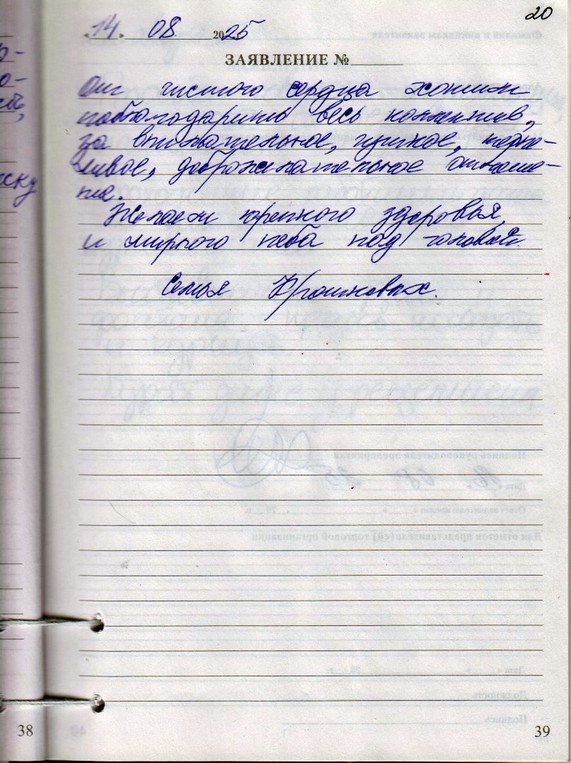 20
"14" 08 2025
ЗАЯВЛЕНИЕ №
От чистого сердца хотим
поблагодарить весь коллектив,
за внимательное, чуткое, терпе-
ливое, доброжелательное отноше-
ние.
Желаем крепкого здоровья
и мирного неба под головой.
Семья
38
39